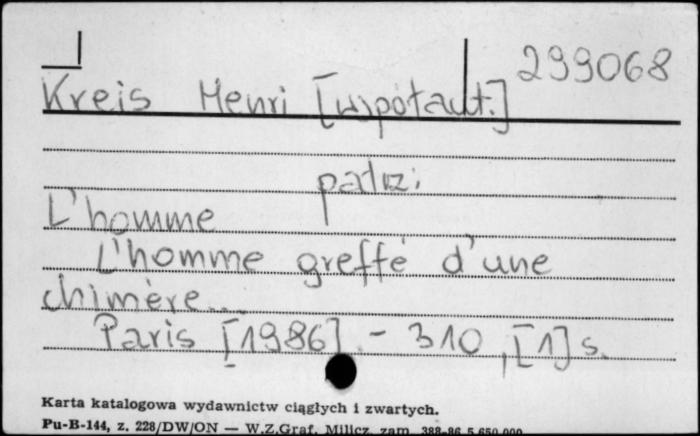 299068
Kreis Henri [współaut.]
patrz:
L'homme
L'homme greffé d'une
chimère...
Paris [1986]. - 310, [1] s.
Karta katalogowa wydawnictw ciągłych i zwartych.
Pu-B-144, z. 228/DW/ON — W.Z.Graf. Milicz, zam. 388-86 5.650.000